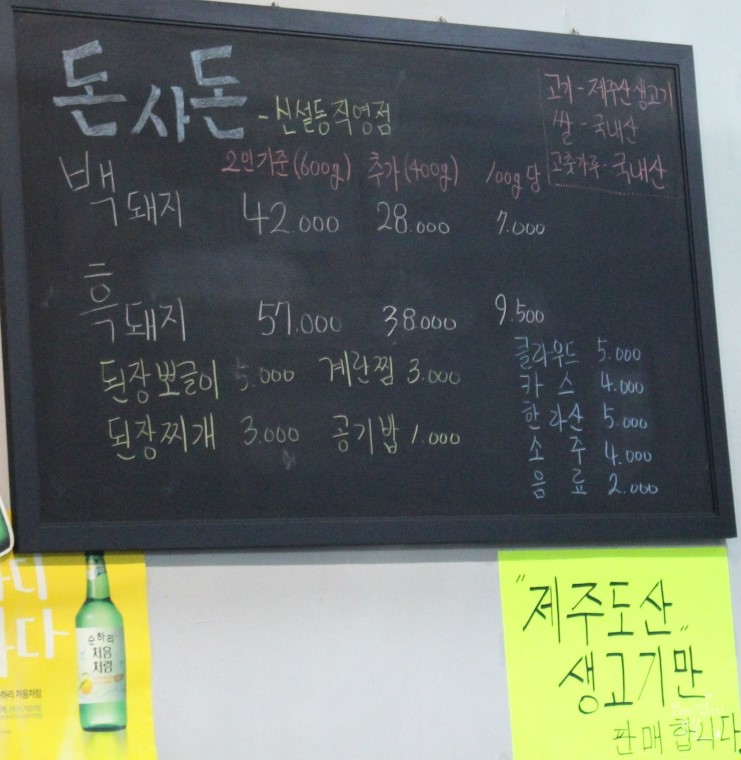 돈사돈 - 신설동직영점
고기 - 제주산생고기
쌀 - 국내산
고춧가루 - 국내산
2인기준(600g) 추가(400g) 100g당
백돼지 42.000 28.000 7.000
흑돼지 57.000 38.000 9.500
된장뽀글이 5.000 계란찜 3.000
된장찌개 3.000 공기밥 1.000
클라우드 5.000
카스 4.000
한라산 5.000
소주 4.000
음료 2.000
순하리
처음
처럼
"제주도산"
생고기만
판매합니다.